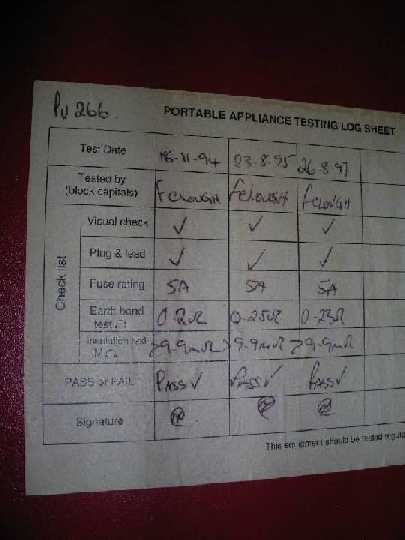 PU 266
PORTABLE APPLIANCE TESTING LOG SHEET
Test Date 16-11-94 23-8-95 26-8-97
Tested by
(block capitals) F CLOUGH F CLOUGH F CLOUGH
Check list
Visual check ✓ ✓ ✓
Plug & lead ✓ ✓ ✓
Fuse rating 5A 5A 5A
Earth bond
test Ω 0-2Ω 0-25Ω 0-23Ω
Insulation
MΩ >9.9mΩ >9.9mΩ >9.9mΩ
PASS or FAIL PASS ✓ PASS ✓ PASS ✓
Signature
This equipment should be tested regula